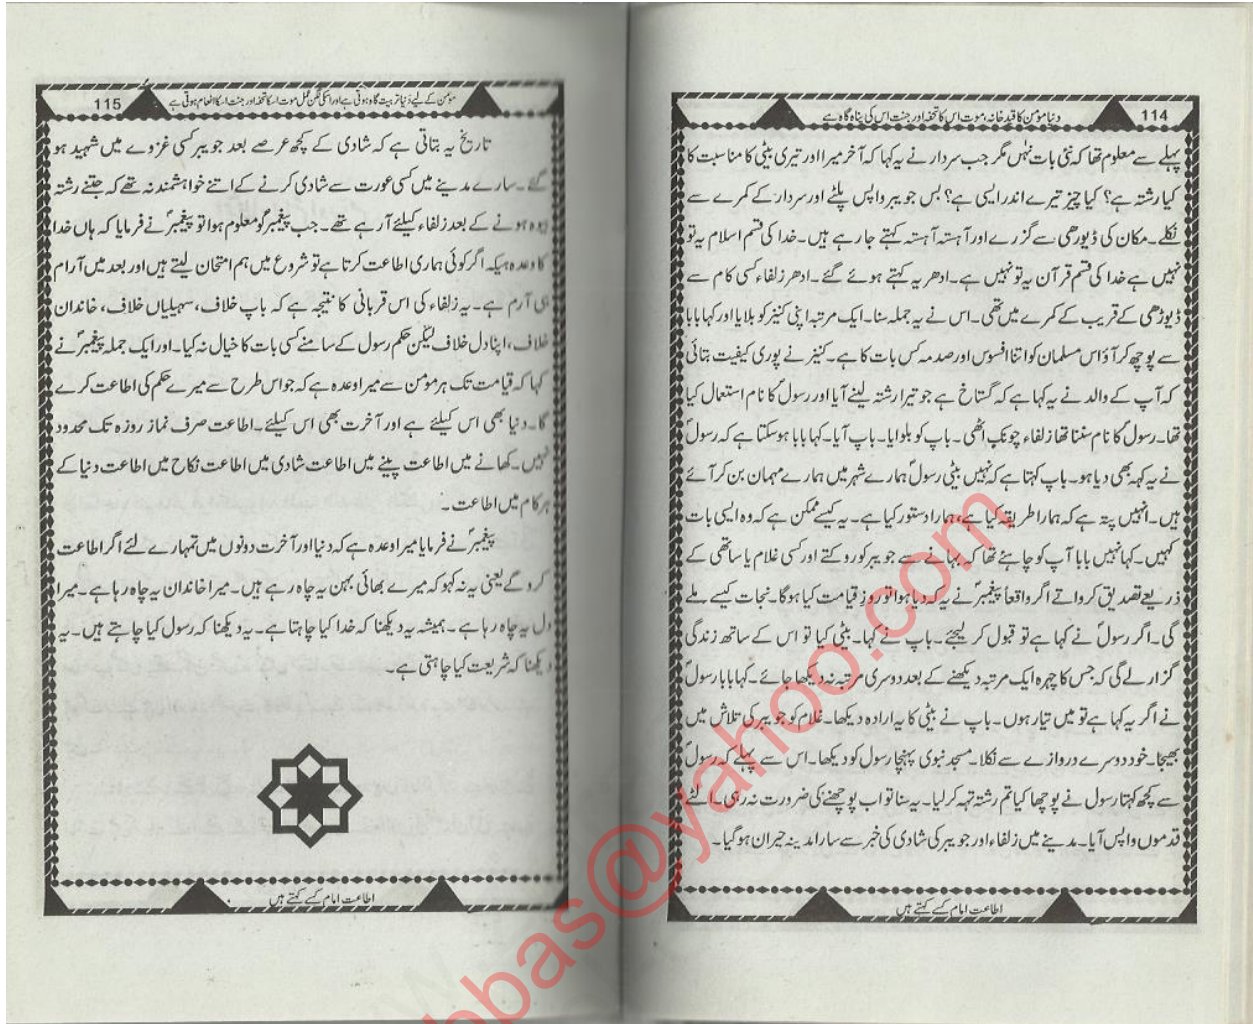 دنیا مومن کا قید خانہ، موت اس کا تحفہ اور جنت اس کی پناہ گاہ ہے
114
پہلے سے معلوم تھا کہ نئی بات نہیں مگر جب سردار نے یہ کہا کہ آخر میرا اور تیری بیٹی کا مناسبت کا
کیا رشتہ ہے؟ کیا چیز تیرے اندر ایسی ہے؟ بس جویبر واپس پلٹے اور سردار کے کمرے سے
نکلے۔ مکان کی ڈیورھی سے گزرے اور آہستہ آہستہ کہتے جا رہے ہیں۔ خدا کی قسم اسلام یہ تو
نہیں ہے خدا کی قسم قرآن یہ تو نہیں ہے۔ ادھر یہ کہتے ہوئے گئے۔ ادھر زلفاء کسی کام سے
ڈیوڑھی کے قریب کے کمرے میں تھی۔ اس نے یہ جملہ سنا۔ ایک مرتبہ اپنی کنیز کو بلایا اور کہا بابا
سے پوچھ کر آؤ اس مسلمان کو اتنا افسوس اور صدمہ کس بات کا ہے۔ کنیز نے پوری کیفیت بتائی
کہ آپ کے والد نے یہ کہا ہے کہ گستاخ ہے جو تیرا رشتہ لینے آیا اور رسولؐ کا نام استعمال کیا
تھا۔ رسولؐ کا نام سننا تھا زلفاء چونک اٹھی۔ باپ کو بلوایا۔ باپ آیا۔ کہا بابا ہو سکتا ہے کہ رسولؐ
نے یہ کہہ بھی دیا ہو۔ باپ کہتا ہے کہ نہیں بیٹی رسولؐ ہمارے شہر میں ہمارے مہمان بن کر آئے
ہیں۔ انہیں پتہ ہے کہ ہمارا طریقہ کیا ہے، ہمارا دستور کیا ہے۔ یہ کیسے ممکن ہے کہ وہ ایسی بات
کہیں۔ کہا نہیں بابا آپ کو چاہئے تھا کہ بہانے سے جویبر کو روکتے اور کسی غلام یا ساتھی کے
ذریعے تصدیق کرواتے اگر واقعا پیغمبرؐ نے یہ کہہ دیا ہوا تو روزِ قیامت کیا ہوگا۔ نجات کیسے ملے
گی۔ اگر رسولؐ نے کہا ہے تو قبول کر لیجئے۔ باپ نے کہا۔ بیٹی کیا تو اس کے ساتھ زندگی
گزار لے گی کہ جس کا چہرہ ایک مرتبہ دیکھنے کے بعد دوسری مرتبہ نہ دیکھا جائے۔ کہا بابا رسولؐ
نے اگر یہ کہا ہے تو میں تیار ہوں۔ باپ نے بیٹی کا یہ ارادہ دیکھا۔ غلام کو جویبر کی تلاش میں
بھیجا۔ خود دوسرے دروازے سے نکلا۔ مسجد نبوی پہنچا رسول کو دیکھا۔ اس سے پہلے کہ رسولؐ
سے کچھ کہتا رسول نے پوچھا کیا تم رشتہ تہہ کر لیا۔ یہ سنا تو اب پوچھنے کی ضرورت نہ رہی۔ الٹے
قدموں واپس آیا۔ مدینے میں زلفاء اور جویبر کی شادی کی خبر سے سارا مدینہ حیران ہو گیا۔
اطاعت امام کسے کہتے ہیں
مومن کے لیے دنیا تربیت گاہ ہوتی ہے اور اسکی عمل موت اسکا تحفہ اور جنت اسکا انعام ہوتی ہے
115
تاریخ یہ بتاتی ہے کہ شادی کے کچھ عرصے بعد جویبر کسی غزوے میں شہید ہو
گئے۔ سارے مدینے میں کسی عورت سے شادی کرنے کے اتنے خواہشمند نہ تھے کہ جتنے رشتہ
بیوہ ہونے کے بعد زلفاء کیلئے آ رہے تھے۔ جب پیغمبرؐ کو معلوم ہوا تو پیغمبرؐ نے فرمایا کہ ہاں خدا
کا وعدہ ہیکہ اگر کوئی ہماری اطاعت کرتا ہے تو شروع میں ہم امتحان لیتے ہیں اور بعد میں آرام
ہی آرم ہے۔ یہ زلفاء کی اس قربانی کا نتیجہ ہے کہ باپ خلاف، سہیلیاں خلاف، خاندان
خلاف، اپنا دل خلاف لیکن حکم رسول کے سامنے کسی بات کا خیال نہ کیا۔ اور ایک جملہ پیغمبرؐ نے
کہا کہ قیامت تک ہر مومن سے میرا وعدہ ہے کہ جو اس طرح سے میرے حکم کی اطاعت کرے
گا۔ دنیا بھی اس کیلئے ہے اور آخرت بھی اس کیلئے۔ اطاعت صرف نماز روزہ تک محدود
نہیں۔ کھانے میں اطاعت پینے میں اطاعت شادی میں اطاعت نکاح میں اطاعت دنیا کے
ہر کام میں اطاعت۔
پیغمبرؐ نے فرمایا میرا وعدہ ہے کہ دنیا اور آخرت دونوں میں تمہارے لئے اگر اطاعت
کرو گے یعنی یہ نہ کہو کہ میرے بھائی بہن یہ چاہ رہے ہیں۔ میرا خاندان یہ چاہ رہا ہے۔ میرا
دل یہ چاہ رہا ہے۔ ہمیشہ یہ دیکھنا کہ خدا کیا چاہتا ہے۔ یہ دیکھنا کہ رسول کیا چاہتے ہیں۔ یہ
دیکھنا کہ شریعت کیا چاہتی ہے۔
اطاعت امام کسے کہتے ہیں
bbas@yahoo.com